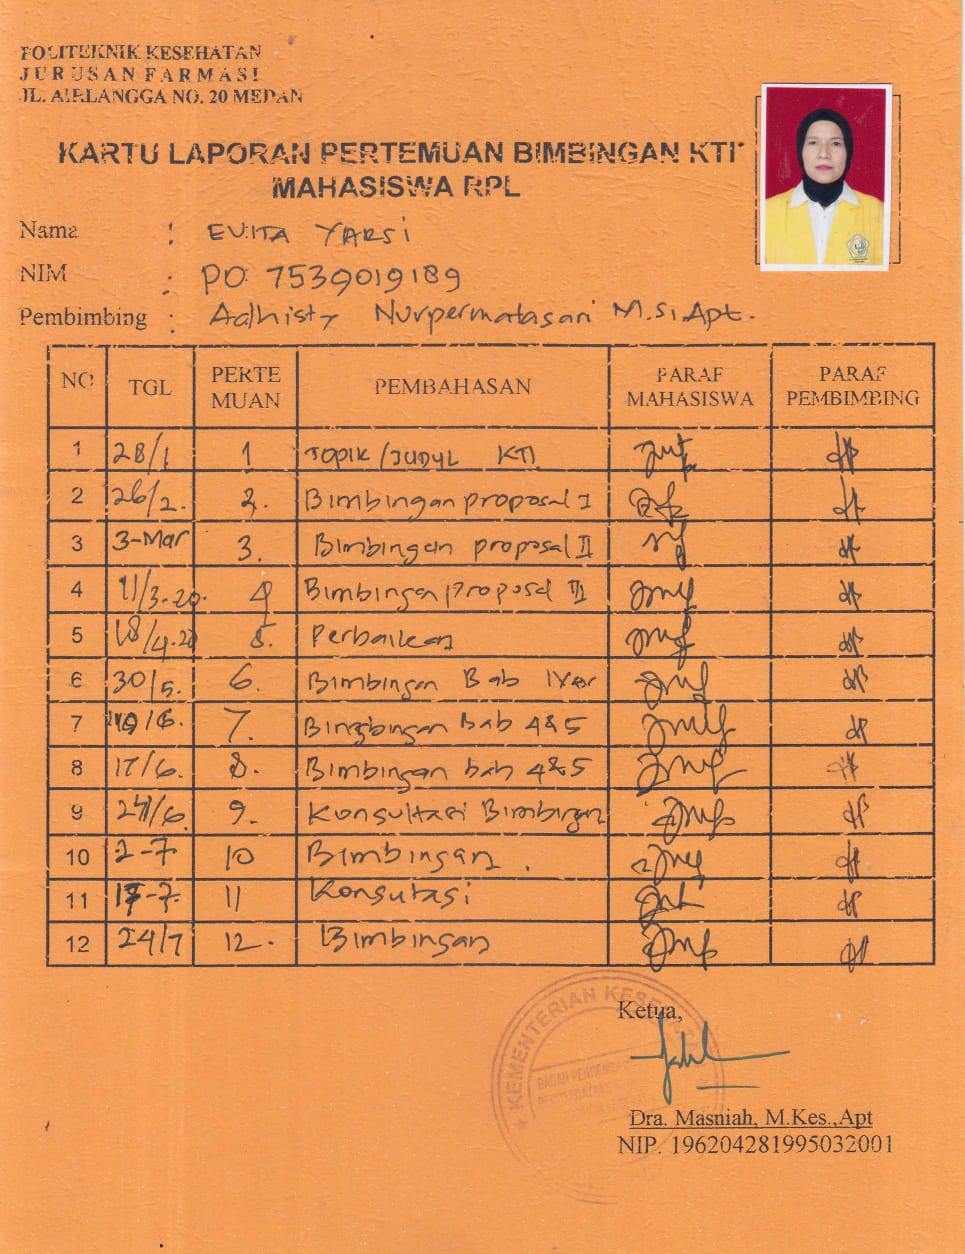 POLITEKNIK KESEHATAN
JURUSAN FARMASI
JL. AIRLANGGA NO. 20 MEDAN
KARTU LAPORAN PERTEMUAN BIMBINGAN KTI
MAHASISWA RPL
Nama : EVITA YARSI
NIM : PO. 7539019189
Pembimbing : Adhisty Nurpermatasari M.Si,Apt.
NO TGL PERTE MUAN PEMBAHASAN PARAF MAHASISWA PARAF PEMBIMBING
1 28/1 1 TOPIK/JUDUL KTI
2 26/2. 2. Bimbingan proposal I
3 3-Mar 3. Bimbingan proposal II
4 11/3.20. 4 Bimbingan proposal III
5 18/4.20 5. Perbaikan
6 30/5. 6. Bimbingan Bab
7 /6. 7. Bingbingan bab 4&5
8 17/6. 8. Bimbingan bab 4&5
9 24/6. 9. Konsultasi Bimbingan
10 2-7 10 Bimbingan.
11 17-7. 11 Konsutasi
12 24/7 12. Bimbingan
KEMENTERIAN KESEHATAN
Ketua,
Dra. Masniah, M.Kes.,Apt
NIP. 196204281995032001